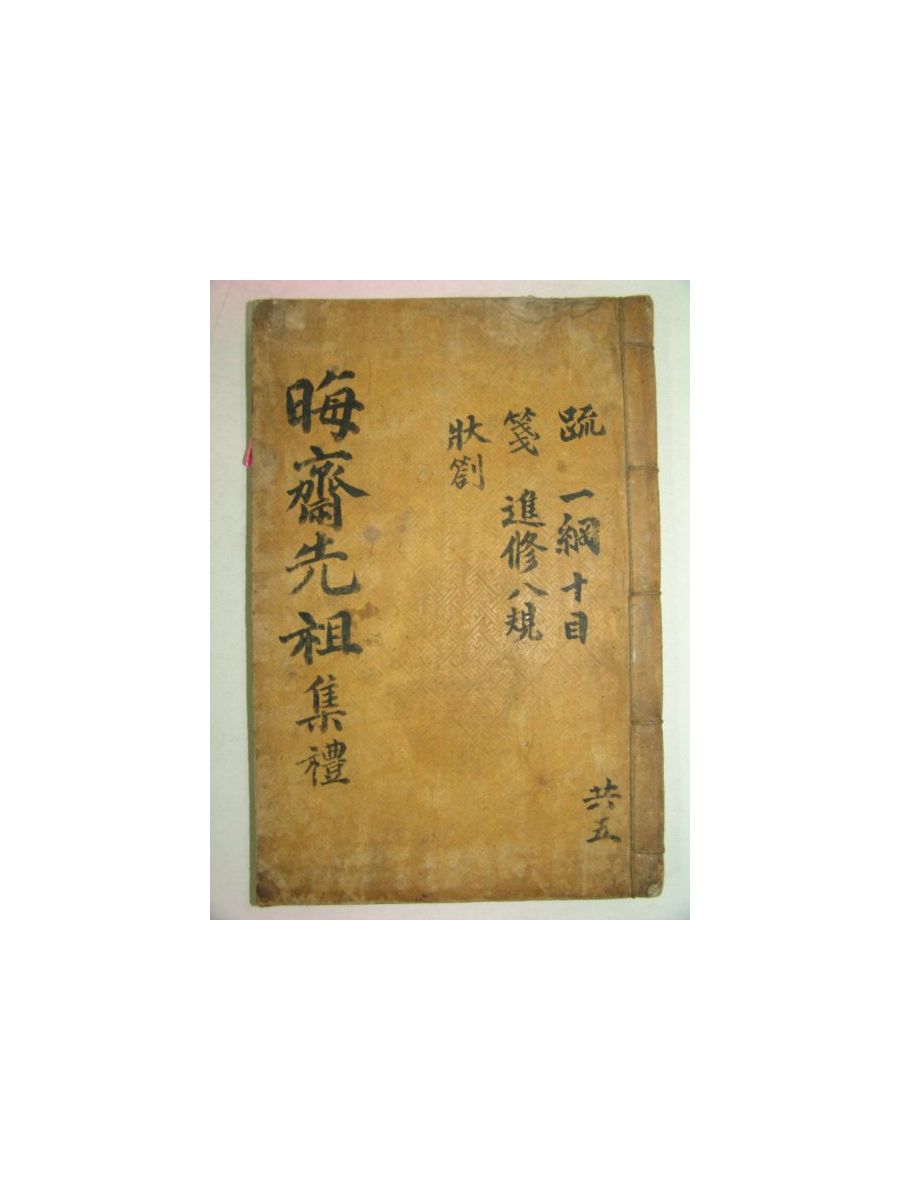 疏 一綱十目
箋 進修八規
狀劄
晦齋先祖集禮
共五